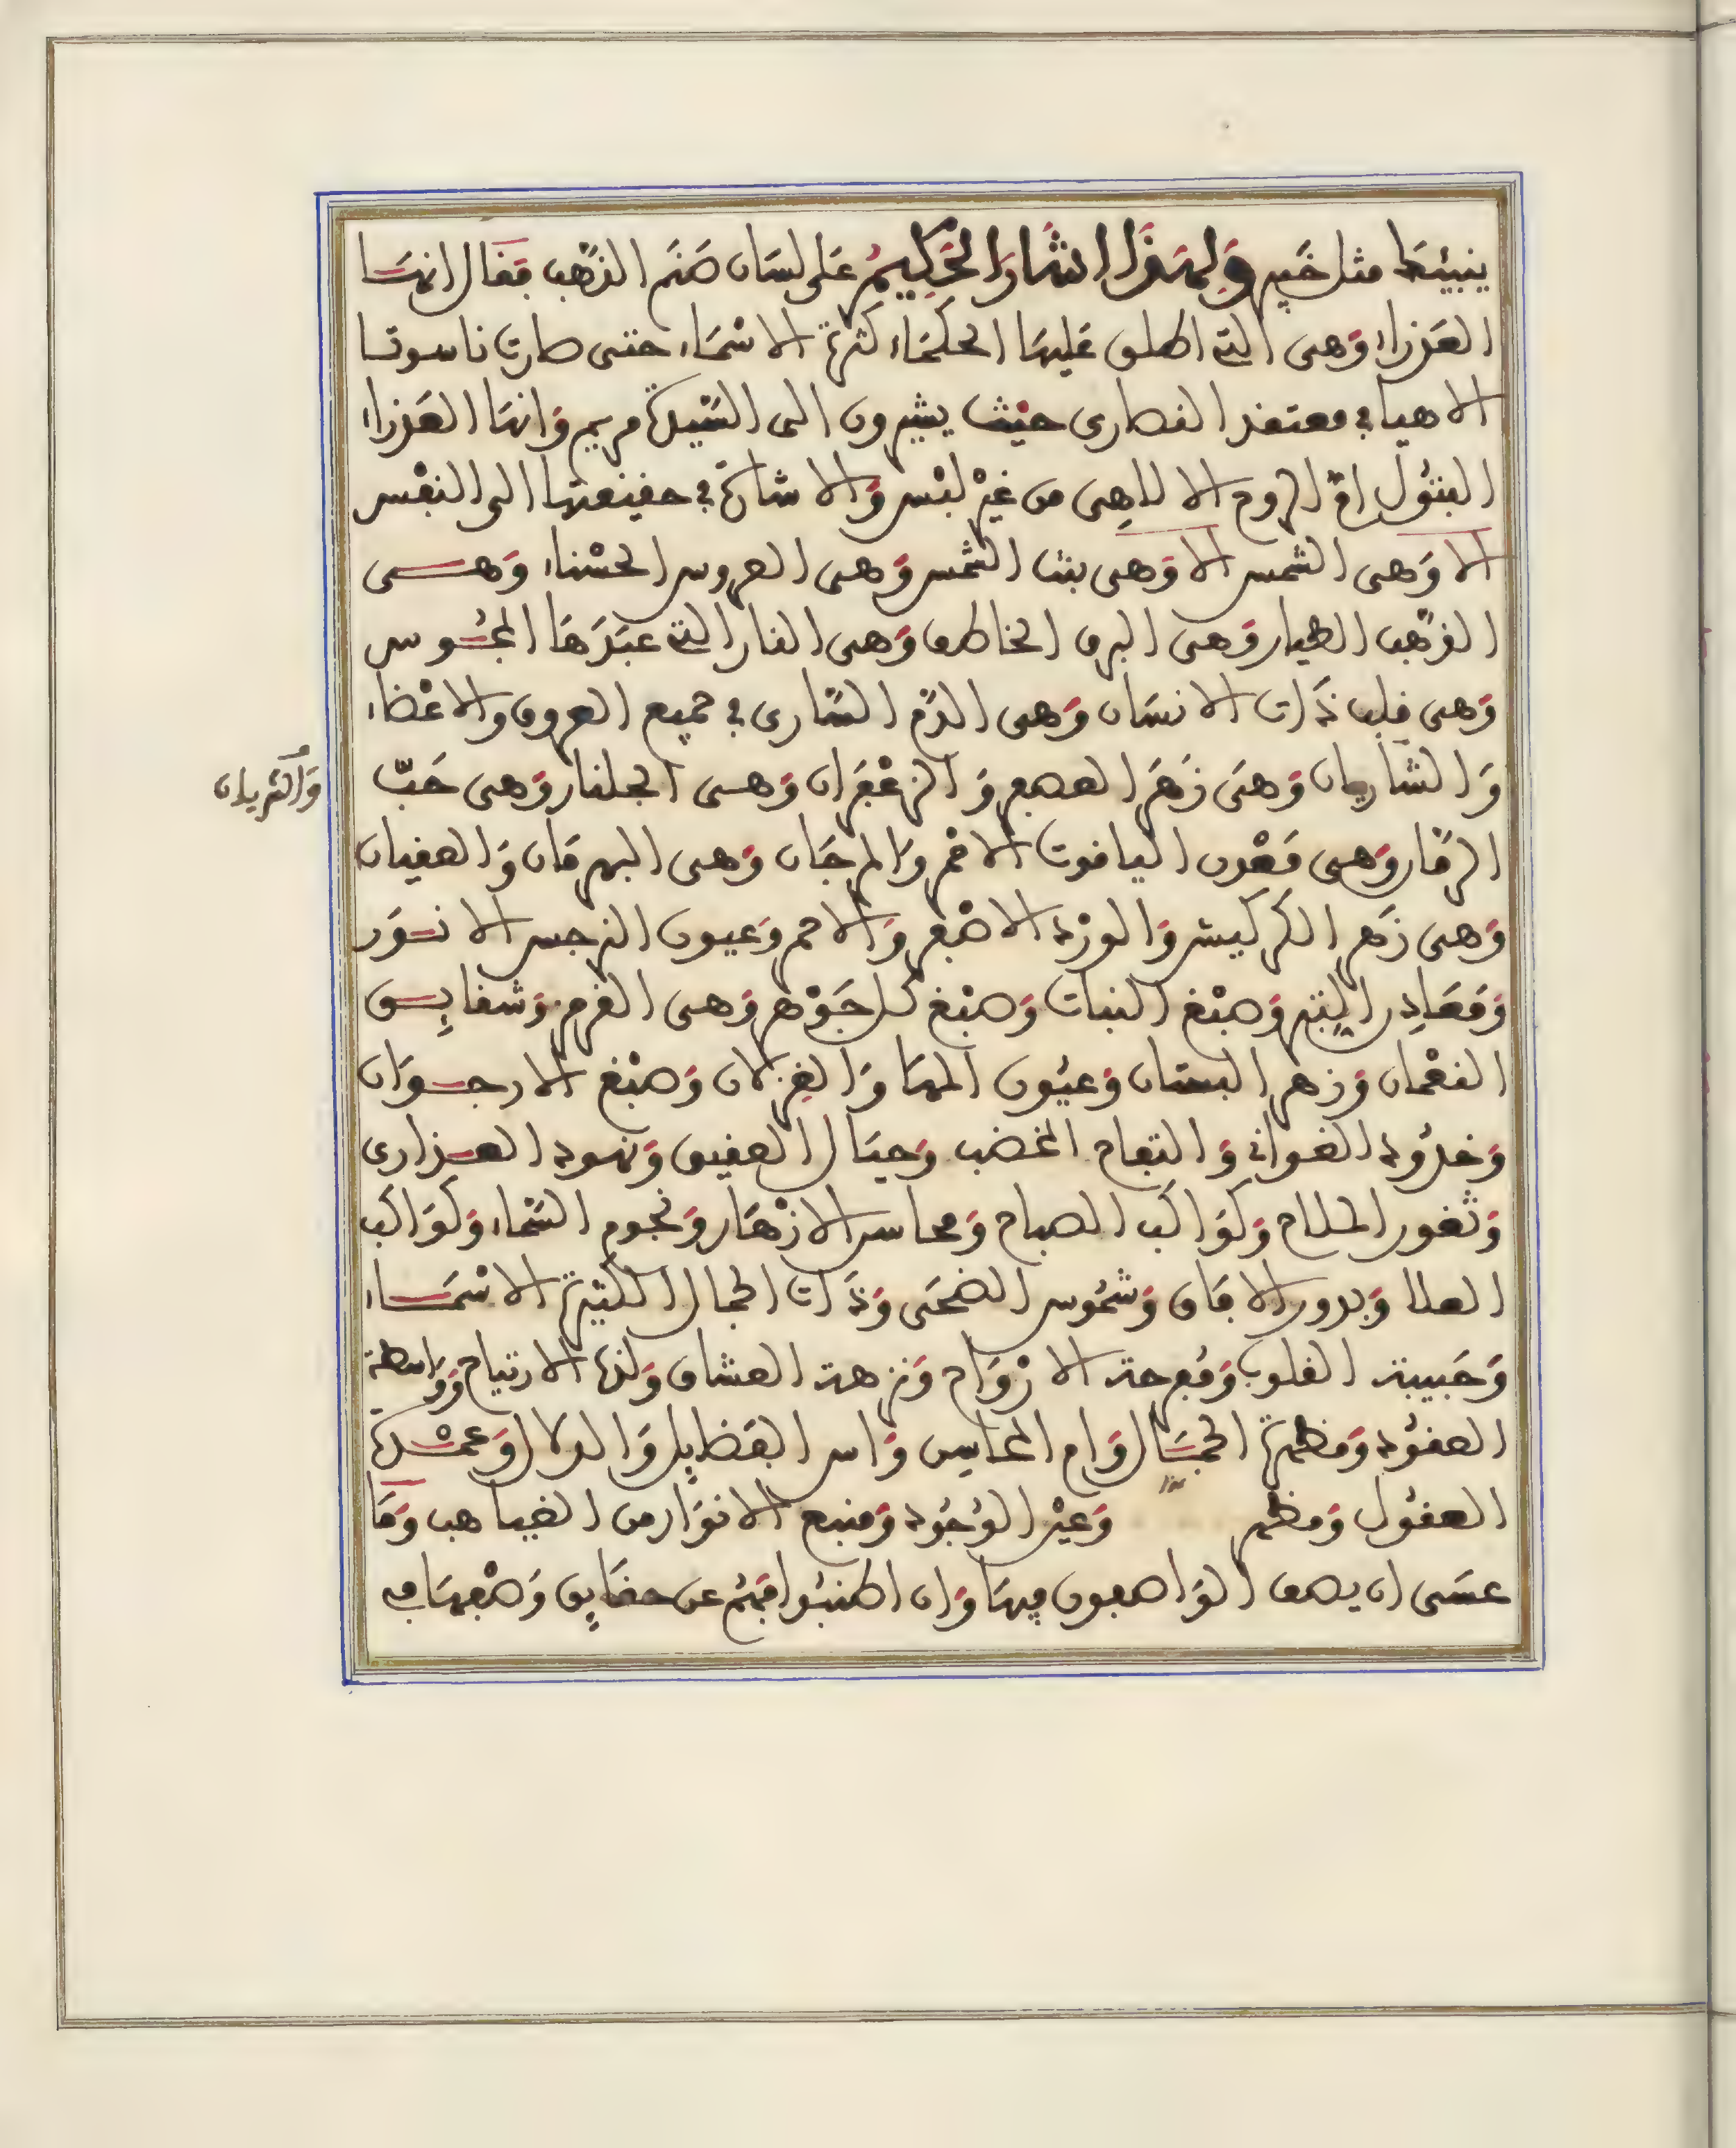 ينبيئك مثل خبير ولهذا اشار الحكيم على لسان صنم الذهب فقال انها
العذراء وهى التى اطلق عليها الحكماء كثرة الاسماء حتى صارت ناسوتا
الاهيا في معتقد النصارى حيث يشيرون الى السيدة مريم وانها العذراء
البتول ام الروح الالاهى من غير لبس والاشارة في حقيقتها الى النفس
الا وهى الشمس الا وهى بنت الشمس وهى العروس الحسناء وهى
الذهب الطيار وهى البرق الخاطف وهى النار التى عبدها المجوس
وهى قلب ذات الانسان وهى الدم السارى في جميع العروق والاعضاء
والشاريان وهى زهر العصفر والزعفران وهى الجلنار وهى حب
والشريان
الرمان وهى معدن الياقوت الاحمر والمرجان وهى البهرمان والعقيان
وهى زهر الكركيش والورد الاصفر والاحمر وعيون النرجس الانور
ومعادن التبر وصبغ النبات وصبغ كل جوهر وهى القرمز وشقايق
النعمان وزهر البستان وعيون المها والغزلان وصبغ الارجوان
وخدود الغوانى والتفاح المخضب وجبال العقيق ونهود العذارى
وثغور الملاح وكواكب الصباح ومحاسن الازهار ونجوم السماء وكواكب
العلا وبدور الافاق وشموس الضحى وذات الجمال الكثيرة الاسماء
وحبيبة القلوب ومفرحة الارواح ونزهة العشاق ولذة الارتياح وواسطة
العقود ومظهرة الجمال وام المحاسن واس الفضايل والدلال وعمدة
العقول ومظهر وعين الوجود ومنبع الانوار من الغياهب وما
عسى ان يصف الواصفون فيها وان اطنبوا فهم عن حقايق وصفها في